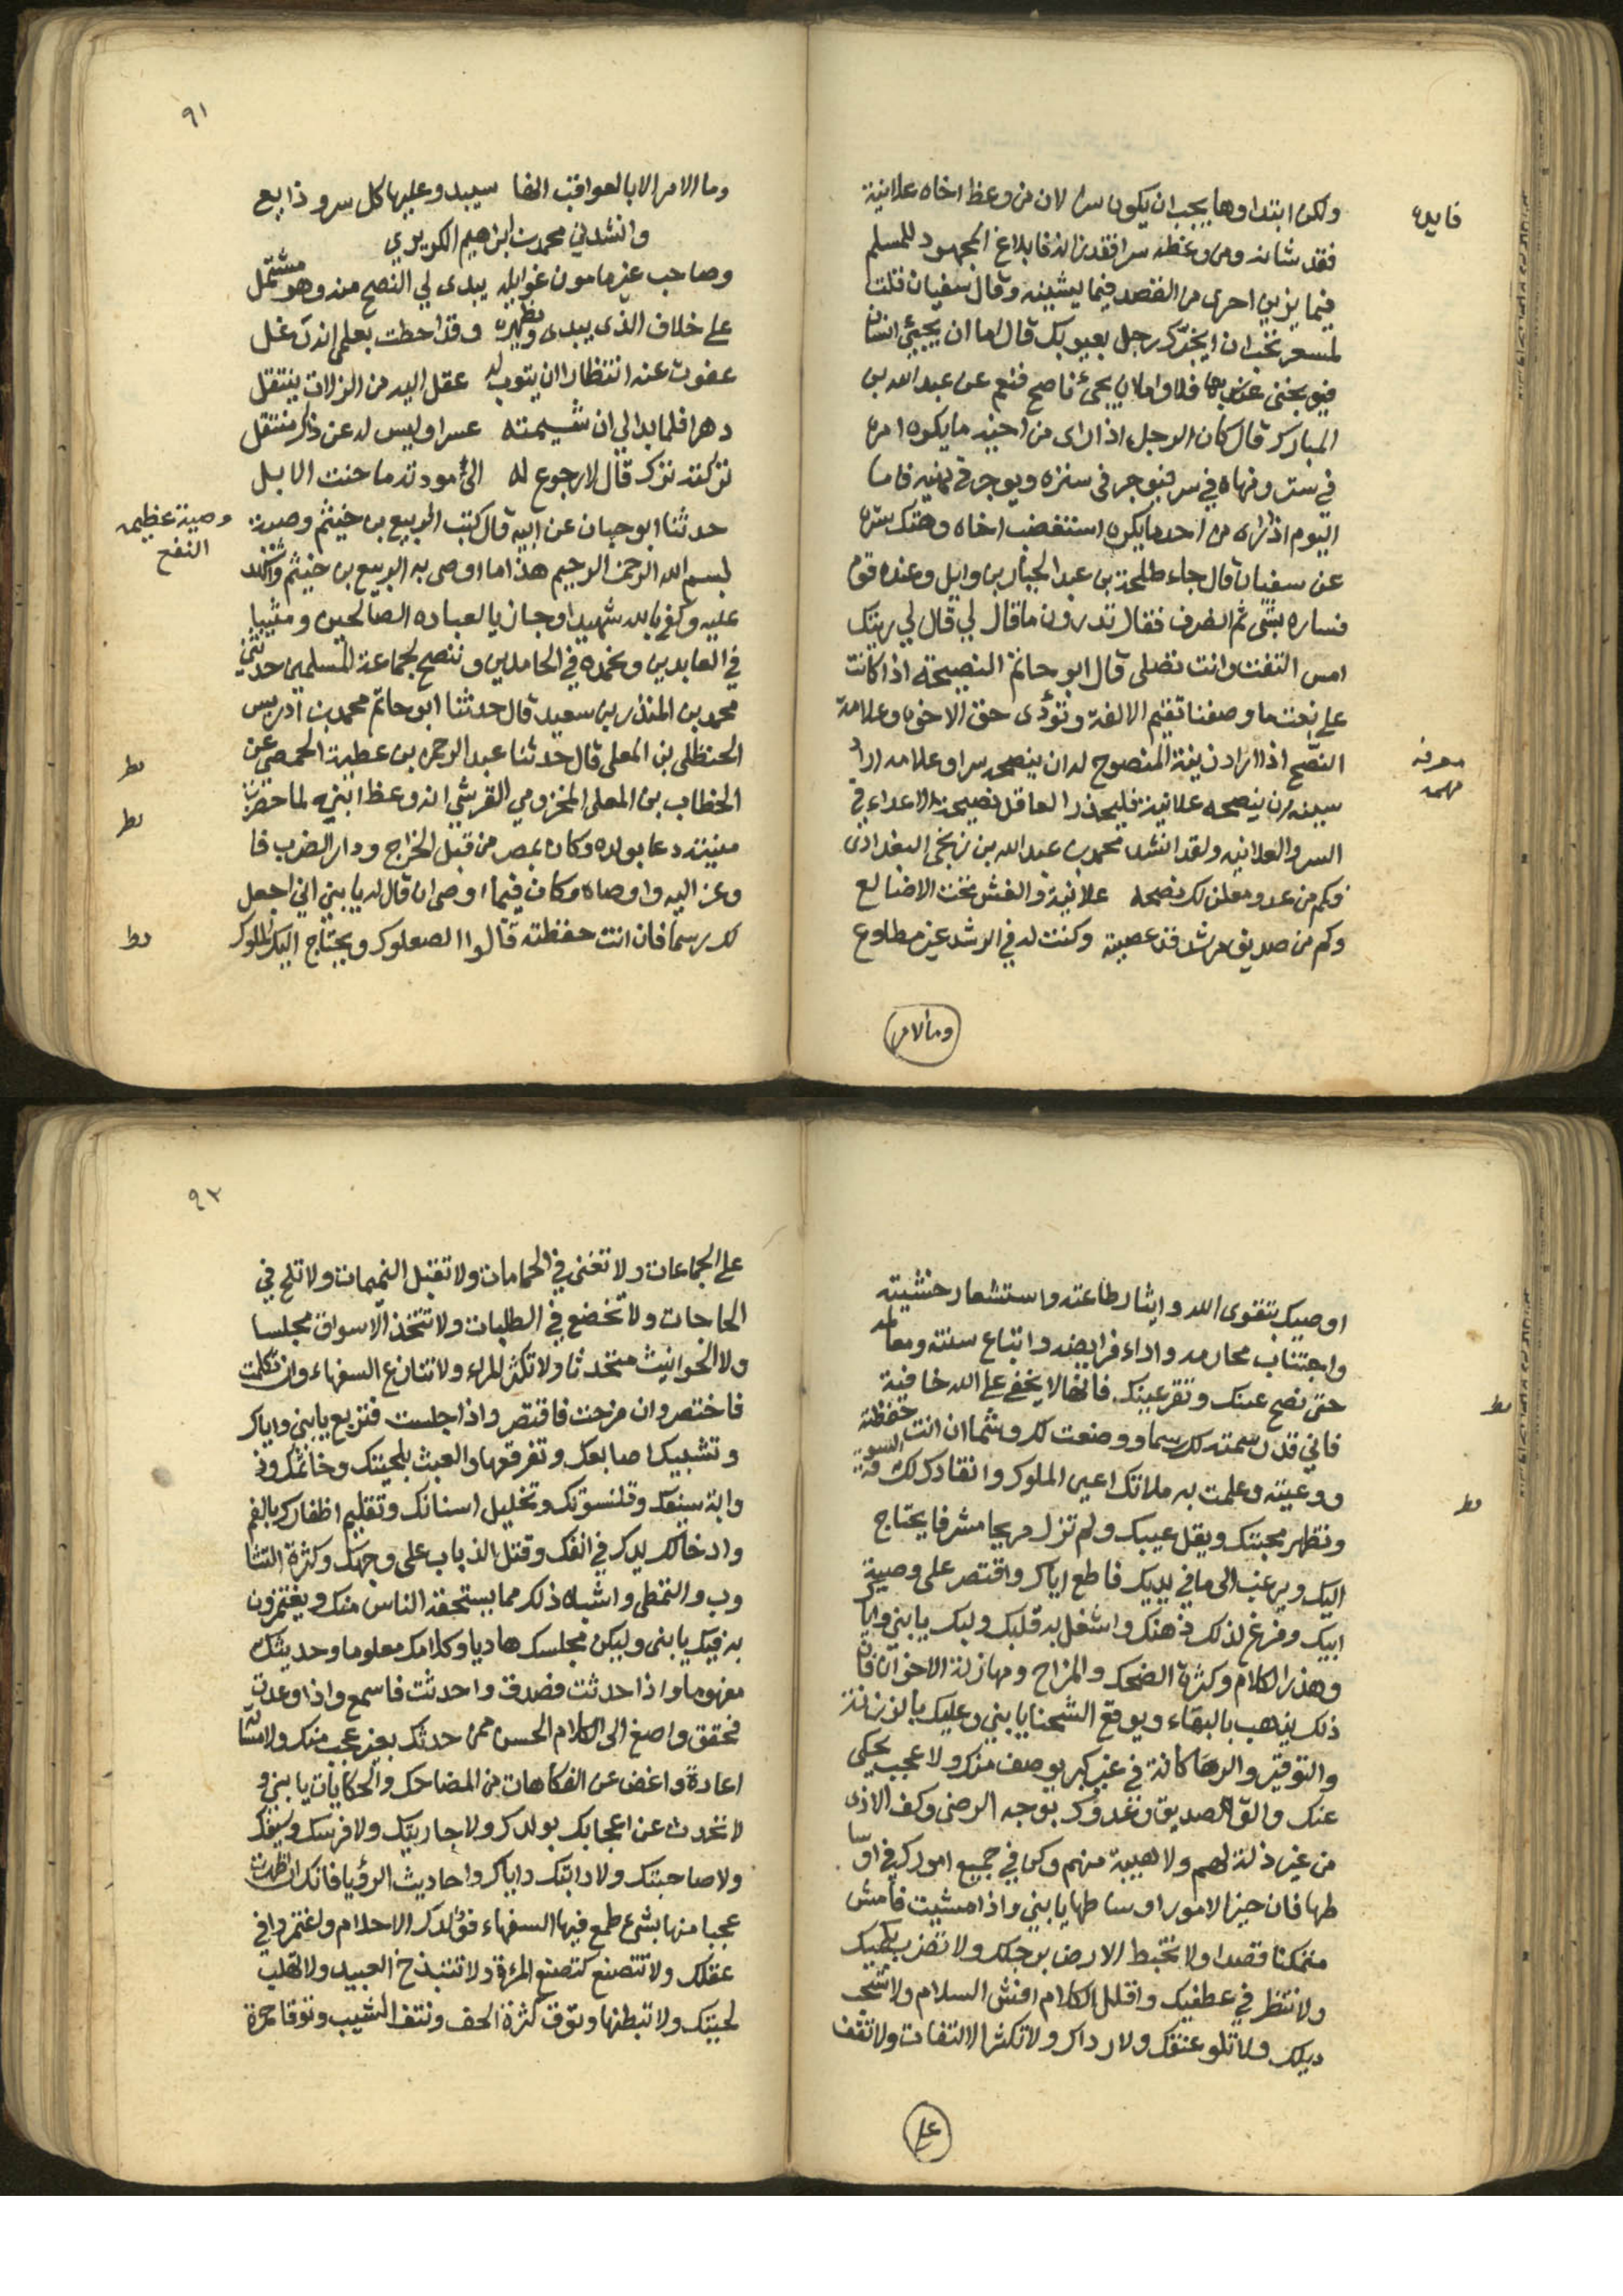 ولكن ابتداوها يجب ان يكون سرا لان من وعظ اخاه علانية
فايده
فقد شانه ومن وعظه سرا فقد زانه فابلاغ المجهود للمسلم
فيما يزين احرى من القصد فيما يشينه وقال سفيان قلت
لمسعر تحب ان يخبرك رجل بعيوبك قال اما ان يجيئ انسان
فيوبخني بها فلا واما ان يجئ ناصح فنعم عن عبد الله بن
المبارك قال كان الرجل اذا راى من اخيه ما يكره امره
في ستر ونهاه في سر فيوجر في ستره ويوجر في نهيه فاما
اليوم اذا راه من احد ما يكره استغضب اخاه وهتك ستره
عن سفيان قال جاء طلحة بن عبد الجبار بن وايل وعنده قوم
فساره بشئ ثم انصرف فقال تدرون ما قال لي قال لي ريتك
امس التفت وانت تصلي قال ابو حاتم النصيحة اذا كانت
على نعت ما وصفنا تقيم الالفة وتؤدى حق الاخوه وعلامة
النصح اذا اراد زينة المنصوح له ان ينصحه سرا وعلامه اراد
معرفه
مهمه
شينه ان ينصحه علانية فليحذر العاقل نصيحة الاعداء في
السر والعلانيه ولقد انشد محمد بن عبد الله بن زنجي البغدادى
فكم من عدو معلن لك نصحه علانية والغش تحت الاضالع
وكم من صديق مرشد قد عصيته وكنت له في الرشد غير مطاوع
وما الامر
٩١
وما الامر الا بالعواقب انها سيبدو عليها كل سر و ذايع
وانشدني محمد بن ابراهيم الكريزي
وصاحب غير مامون غوايله يبدى لي النصح منه وهو مشتمل
على خلاف الذى يبدى ويظهره وقد احطت بعلمى انه دغل
عفوت عنه انتظارا ان يتوب له عقل اليه من الزلات ينتقل
دهرا فلما بدا لي ان شيمته عسرا وليس له عن ذاك منتقل
تركته ترك قال لا رجوع له الى مودته ما حنت الابل
حدثنا ابو حيان عن ابيه قال كتب الربيع بن خيثم وصيه
وصية عظيمه
النفع
بسم الله الرحمن الرحيم هذا ما اوصى به الربيع بن خيثم واشهد الله
عليه وكفى بالله شهيدا وجازيا لعباده الصالحين ومثيبا
في العابدين ونحمده في الحامدين وننصح لجماعة المسلمين حدثني
محمد بن المنذر بن سعيد قال حدثنا ابو حاتم محمد بن ادريس
الحنظلي بن المعلى قال حدثنا عبد الرحمن بن عطية الحمصي عن
الخطاب بن المعلى المخزومي القرشي انه وعظ ابنه لما حضرت
منيته دعا بولده وكان بمصر من قبل الخراج ودار الضرب فا
وعز اليه واوصاه وكان فيما اوصى ان قال له يا بني اني اجعل
لك رسما فان انت حفظته قالوا الصعلوك ويحتاج اليك الملوك
اوصيك بتقوى الله وايثار طاعته واستشعار خشيته
واجتناب محارمه واداء فرايضه واتباع سنته ومعالمه
حتى تصح عينك وتقر عينك فانها لا يخفى على الله خافية
فاني قد رسمت لك رسما ووضعت لك وشما ان انت حفظته
ووعيته وعلمت به ملاتك اعين الملوك وانقادك لك فيه السوية
وتظهر محبتك ويقل عيبك ولم تزل مريحا مشرفا يحتاج
اليك ويرغب الى ما في يديك فاطع اياك واقتصر على وصية
ابيك وفرغ لذلك ذهنك واشغل به قلبك ولبك يا بني واياك
وهذر الكلام وكثرة الضحك والمزاح ومهازلة الاخوان فان
ذلك يذهب بالبهاء ويوقع الشحنا يا بني وعليك بالرزانة
والتوقير والرهاكانة في غير كبر يوصف منك ولا عجب يحكى
عنك والق الصديق وعدوك بوجه الرضى وكف الاذى
من غير ذلة لهم ولا هيبة منهم وكن في جميع امورك في اوسا
طها فان خير الامور اوساطها يا بني واذا مشيت فامش
متمكنا قصدا ولا تخبط الارض برجلك ولا تضرب بكميك
ولا تنظر في عطفيك واقلل الكلام افش السلام ولا تسحب
ذيلك ولا تلو عنقك ولا رداك ولا تكثر الالتفات ولا تقف
على
٩٢
على الجماعات ولا تغني في الحمامات ولا تقبل النميمات ولا تلح في
الحاجات ولا تخضع في الطلبات ولا تتخذ الاسواق مجلسا
ولا الحوانيت متحدثا ولا تكثر المراء ولا تنازع السفهاء وان تكلمت
فاختصر وان مزحت فاقتصر واذا جلست فتربع يا بني واياك
وتشبيك اصابعك وتفرقعها والعبث بلحيتك وخاتمك وذ
وابة سيفك وقلنسوتك وتخليل اسنانك وتقليم اظفارك بالفم
وادخالك يدك في انفك وقتل الذباب على وجهك وكثرة التثا
وب والتمطى واشباه ذلك مما يستحقه الناس منك ويغتمزون
به فيك يا بنى وليكن مجلسك هاديا وكلامك معلوما وحديثك
مفهوما واذا حدثت فصدق واحدثت فاسمع واذا وعدت
فحقق واصغ الى الكلام الحسن ممن حدثك بغير عجب منك ولا مساله
اعادة واغض عن الفكاهات من المضاحك والحكايات يا بني و
لا تحدث عن اعجابك بولدك ولا جاريتك ولا فرسك وسيفك
ولا صاحبتك ولا دابتك واياك واحاديث الرؤيا فانك ان اظهرت
عجبا منها بشئ طمع فيها السفهاء فولدك الاحلام واغتمزوا في
عقلك ولا تتصنع كتصنع المرءة ولا تتبذخ العبيد ولا تهلب
لحيتك ولا تبطنها وتوق كثرة الحف ونتف الشيب وتوقا حمرة